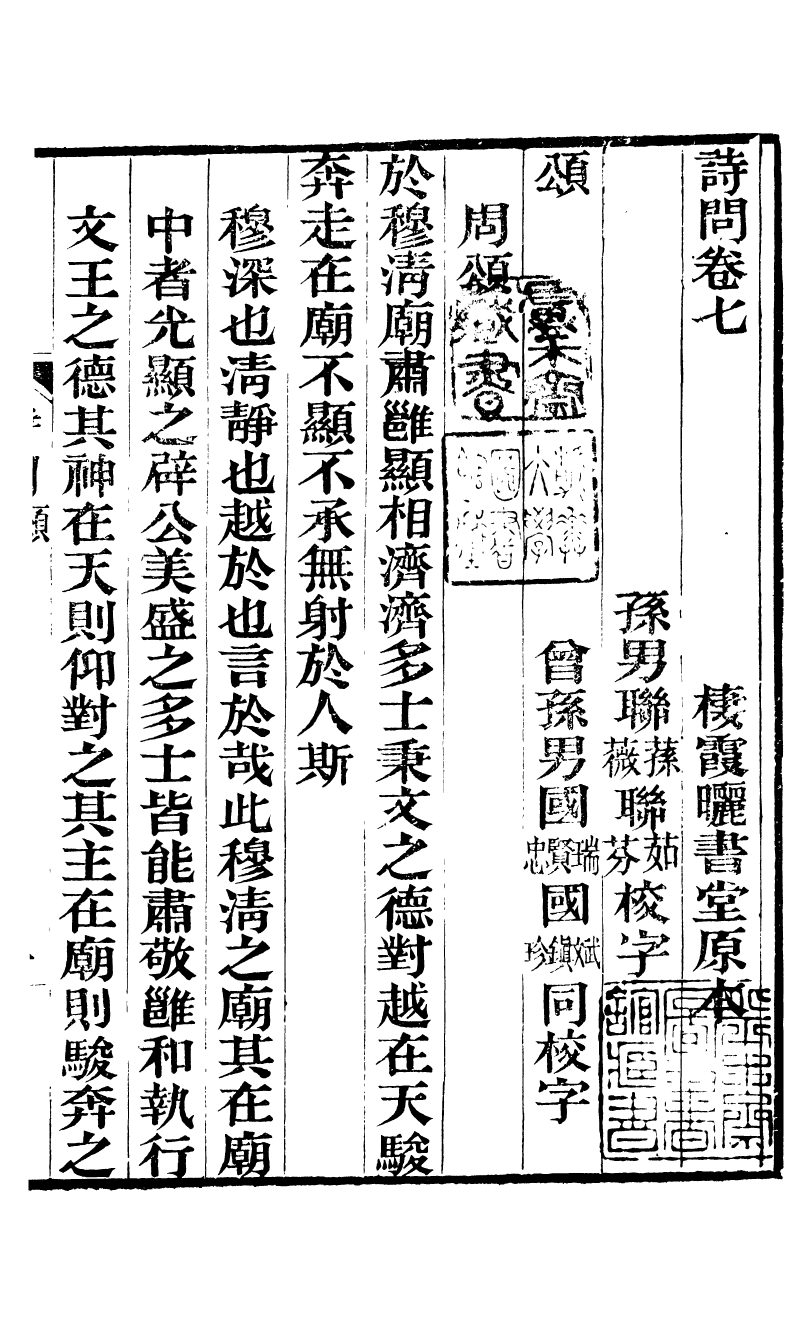 詩問卷七
棲霞曬書堂原本
孫男聯蓀薇聯茹芬校字
頌
曾孫男國瑞賢忠國斌鎮珍同校字
周頌
於穆淸廟肅雝顯相濟濟多士秉文之德對越在天駿
奔走在廟不顯不承無射於人斯
穆深也淸靜也越於也言於哉此穆淸之廟其在廟
中者光顯之辟公美盛之多士皆能肅敬雝和執行
文王之德其神在天則仰對之其主在廟則駿奔之